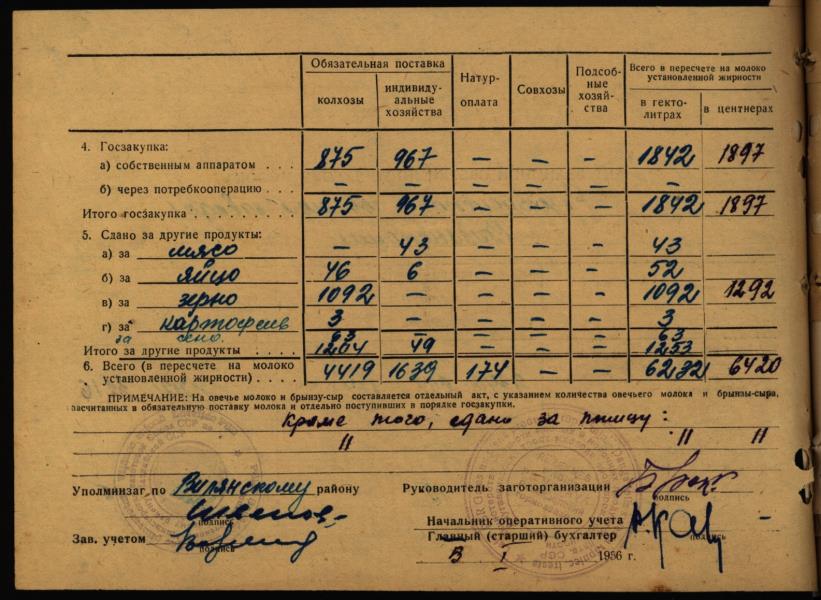 Обязательная поставка Натур-оплата Совхозы Подсоб-ные хозяй-ства Всего в пересчете на молоко установленной жирности
колхозы индивиду-альные хозяйства в гекто-литрах в центнерах
4. Госзакупка:
а) собственным аппаратом . . . 875 967 — — — 1842 1897
б) через потребкооперацию . . . — — — — — —
Итого госзакупка . . . . . . . 875 967 — — — 1842 1897
5. Сдано за другие продукты:
а) за мясо — 43 — — — 43
б) за яйцо 46 6 — — — 52
в) за зерно 1092 — — — — 1092 1292
г) за картофель 3 — — — — 3
за сено. 63 — — — — 63
Итого за другие продукты . . . . 1204 49 — — — 1253
6. Всего (в пересчете на молоко
установленной жирности) . . . . 4419 1639 174 — — 6232 6420
ПРИМЕЧАНИЕ: На овечье молоко и брынзу-сыр составляется отдельный акт, с указанием количества овечьего молока и брынзы-сыра,
засчитанных в обязательную поставку молока и отдельно поступивших в порядке госзакупки.
Кроме того, сдано за птицу:
" " "
Уполминзаг по Вирянскому району
Руководитель заготорганизации
подпись
подпись
Начальник оперативного учета
Зав. учетом
Главный (старший) бухгалтер
подпись
подпись
3 I 1956 г.